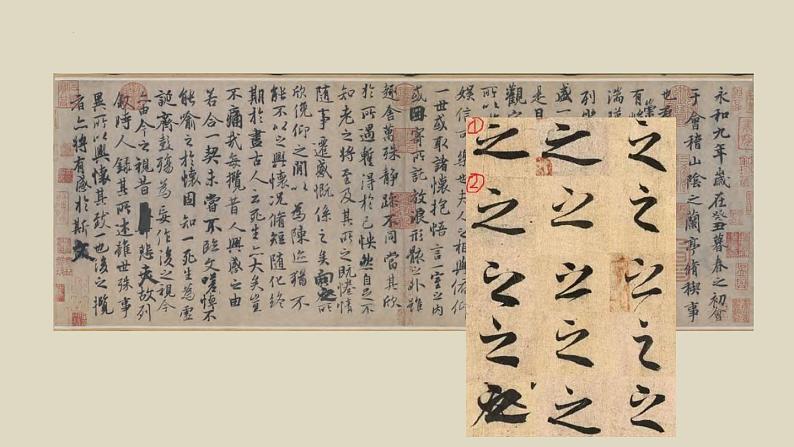 永和九年歲在癸丑暮春之初會
于會稽山陰之蘭亭脩稧事
也
有
湍
列
盛一
是日
觀
所以
娛信可樂也夫人之相與俯仰
一世或取諸懷抱悟言一室之內
或因寄所託放浪形骸之外雖
趣舍萬殊靜躁不同當其欣
於所遇蹔得於己怏然自足不
知老之將至及其所之既惓情
隨事遷感慨係之矣向之所
欣俛仰之閒以為陳迹猶不
能不以之興懷況脩短隨化終
期於盡古人云死生亦大矣豈
不痛哉每攬昔人興感之由
若合一契未嘗不臨文嗟悼不
能喻之於懷固知一死生為虛
誕齊彭殤為妄作後之視今
亦由今之視昔悲夫故列
敘時人錄其所述雖世殊事
異所以興懷其致一也後之攬
者亦將有感於斯文
① 之 之 之
② 之 之 之
之 之 之
之 之 之
之 之 之